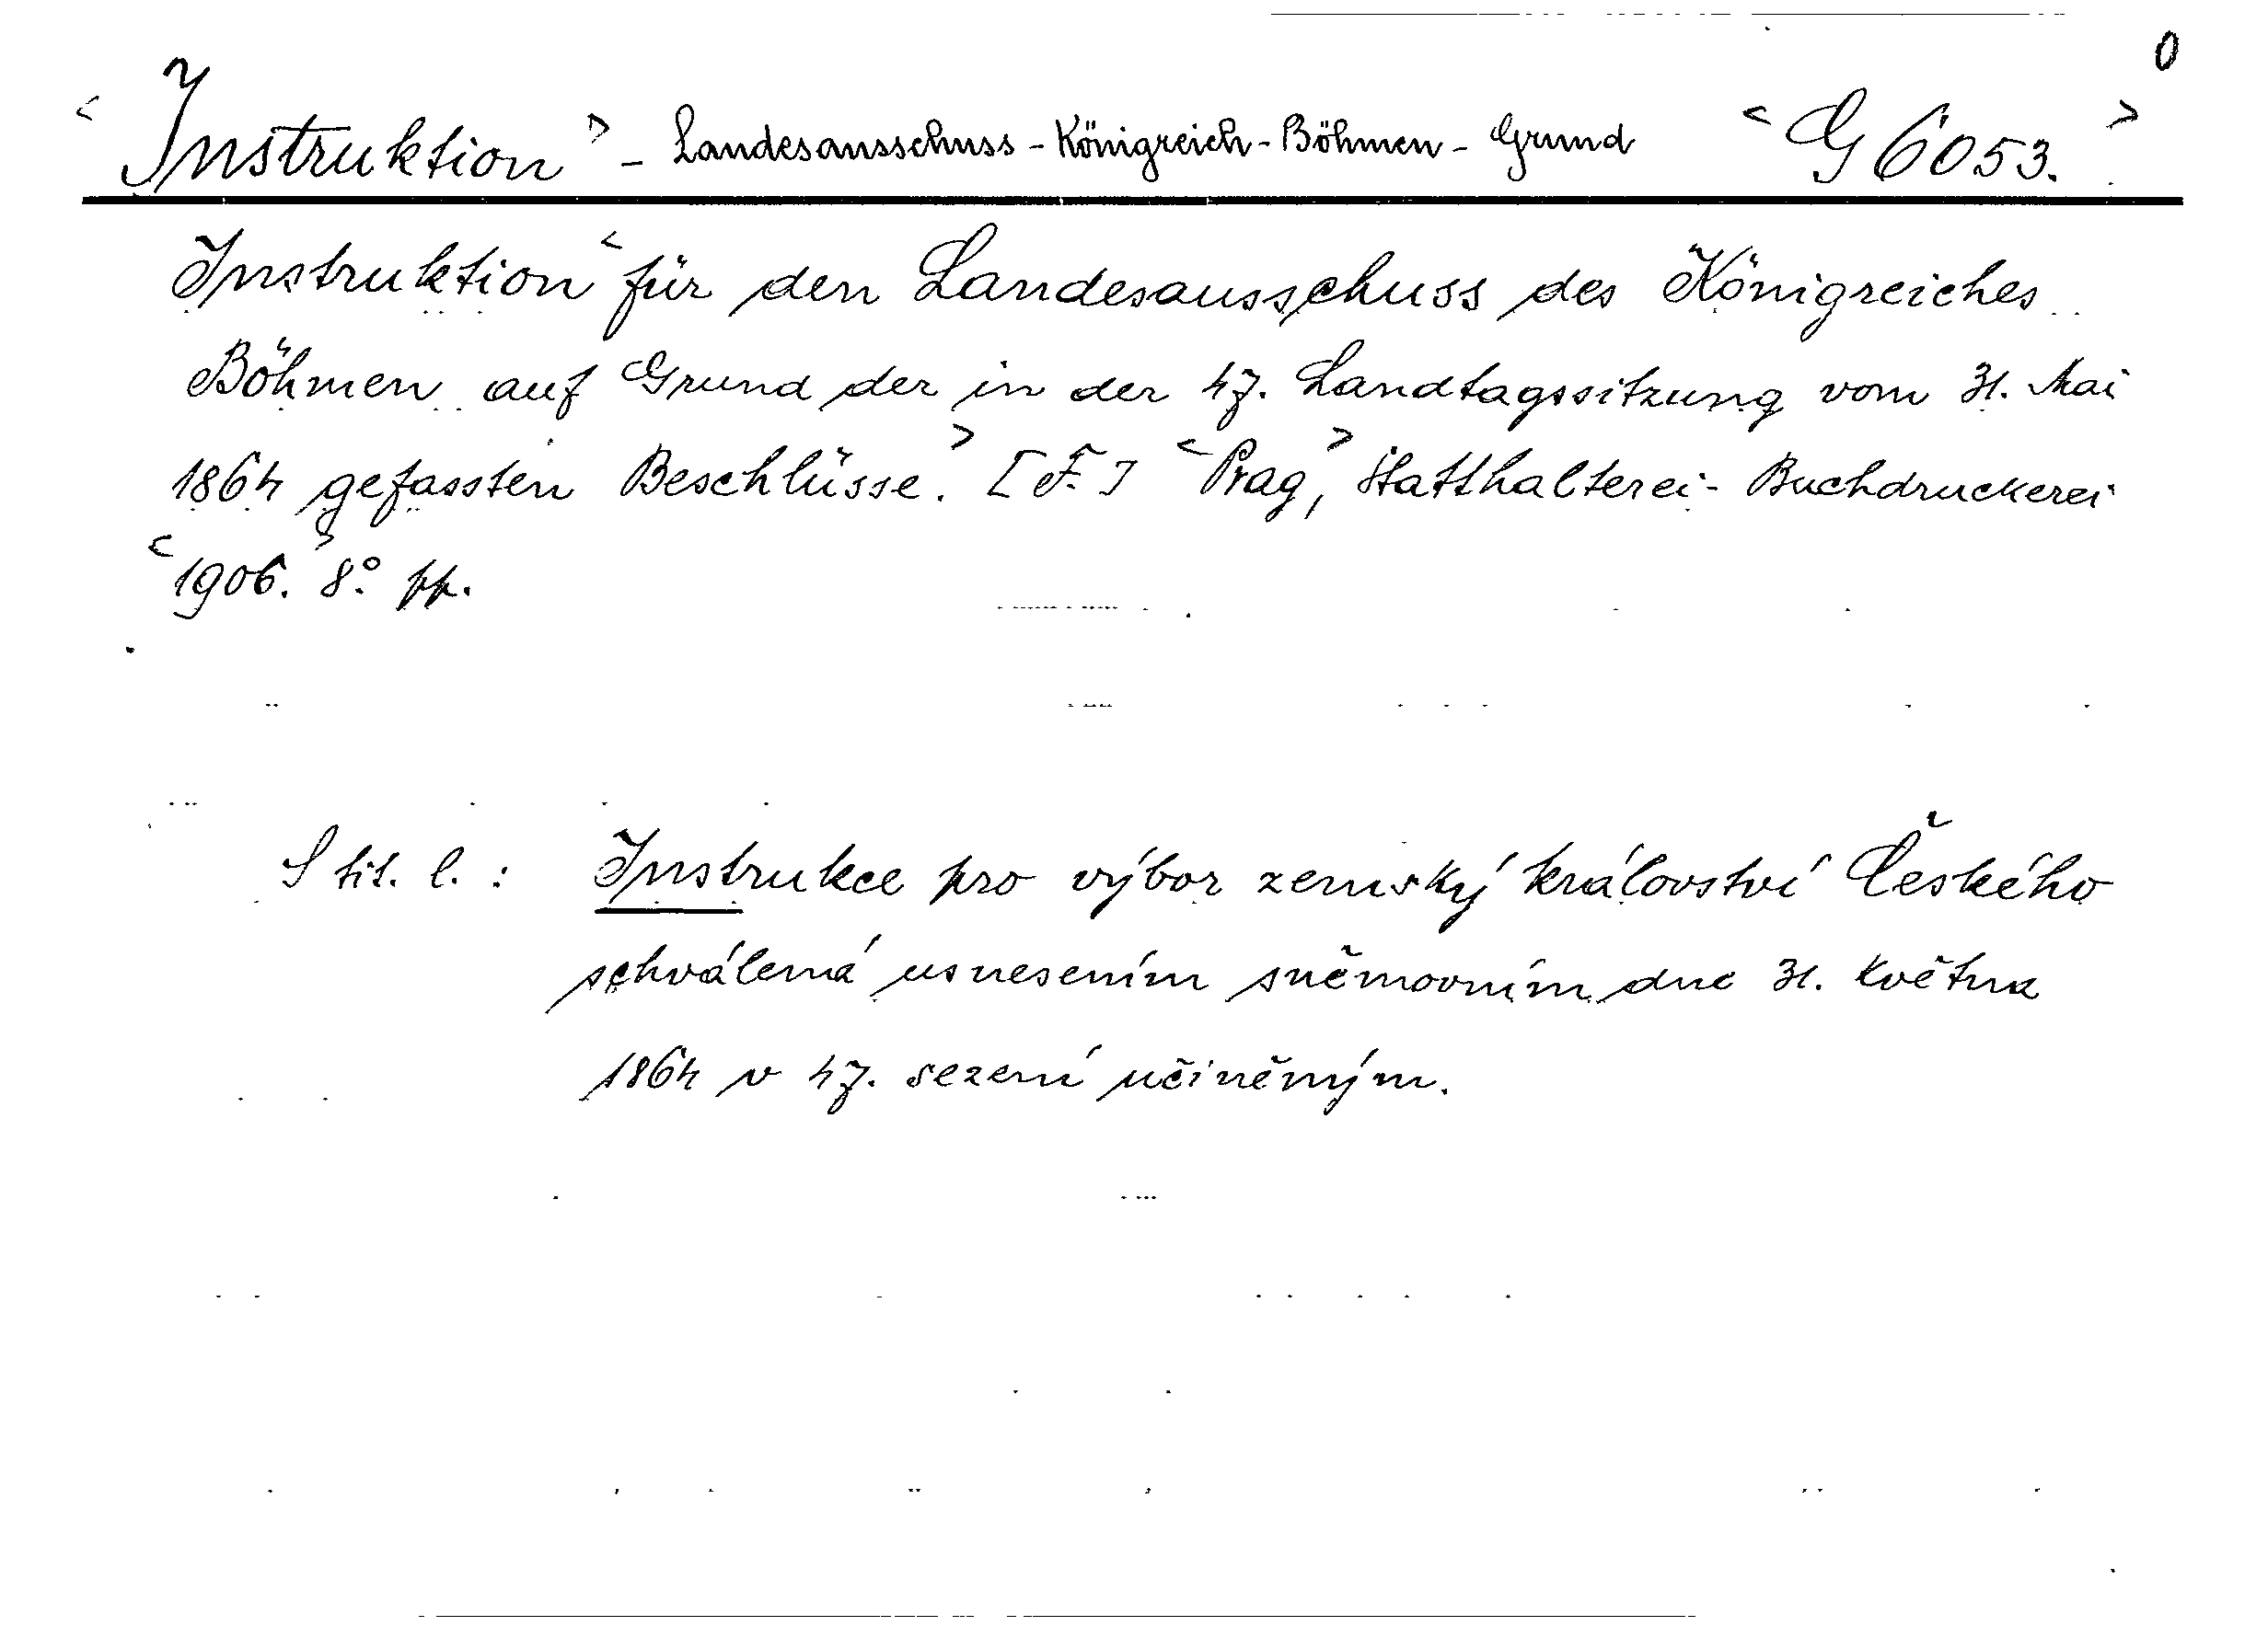 0
< Instruktion > - Landesausschuss - Königreich - Böhmen - Grund < G 6053. >
Instruktion < für den Landesausschuss des Königreiches
Böhmen auf Grund der in der 47. Landtagssitzung vom 31. Mai
1864 gefassten Beschlüsse. > [F.] < Prag, > Statthalterei-Buchdruckerei
< 1906. > 8° pp.
S tit. l.: Instrukce pro výbor zemský království Českého
schválená usnesením sněmovním dne 31. května
1864 v 47. sezení učiněným.